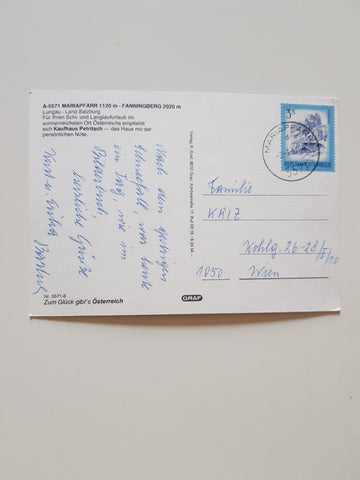 A-5571 MARIAPFARR 1120 m - FANNINGBERG 2020 m
Lungau - Land Salzburg
Für Ihren Schi- und Langlaufurlaub im
sonnenreichsten Ort Österreichs empfiehlt
sich Kaufhaus Petritsch — das Haus mit der
persönlichen Note.
Nach dem gestrigen
Schneefall, war heute
ein Tag, wie im
Bilderbuch,
Herzliche Grüße
Kurt u. Erika
Nr. 5571-8
Zum Glück gibt's Österreich
GRAF
3
MARIAPFARR
5571
REPUBLIK ÖSTERREICH
Familie
KRIZ
Kohlg. 26-28/I/10
1050 Wien